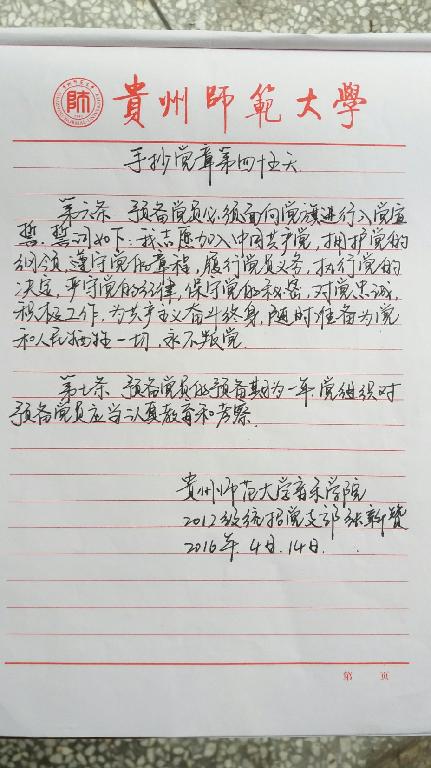 貴州師範大學
手抄党章第四十五天
第六条 预备党员必须面向党旗进行入党宣
誓。誓词如下:我志愿加入中国共产党,拥护党的
纲领,遵守党的章程,履行党员义务,执行党的
决定,严守党的纪律,保守党的秘密,对党忠诚,
积极工作,为共产主义奋斗终身,随时准备为党
和人民牺牲一切,永不叛党。
第七条 预备党员的预备期为一年。党组织对
预备党员应当认真教育和考察。
貴州师范大学音乐学院
2012级统招党支部张
2016年.4月.14日.
第 页